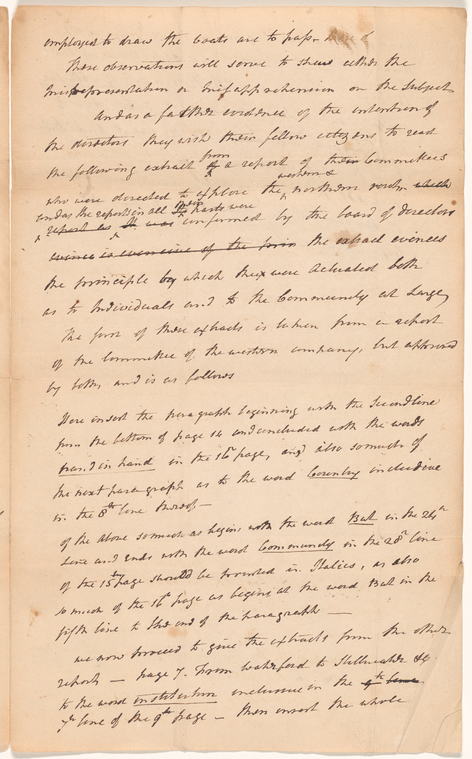 employed to draw the boats are to pass
These observations will serve to shew either the
misrepresentation or misapprehension on the subject
And as a farther evidence of the intention of
the directors they wish their fellow citizens to read
the following extract from a report of their Committees
who were directed to explore the western & northern route which
and as the reports in all their parts were
report as it was confirmed by the board of directors
evince is evincive of the the extract evinces
the principle by which they were actuated both
as to Individuals and to the Community at Large,
The first of these extracts is taken from a report
of the Committee of the western company, but approved
by both, and is as follows
Here insert the paragraph beginning with the second line
from the bottom of page 14 and concluded with the words
hand in hand in the 16th page, and also so much of
the next paragraph as to the word Country inclusive
in the 8th line thereof —
of the above so much as begins with the word But in the 24th
line and ends with the word Community in the 28th line
of the 15th page should be printed in Italics, as also
so much of the 16th page as begins at the word But in the
fifth line to the end of the paragraph —
we now proceed to give the extracts from the other
reports — page 7. From Waterford to Stillwater &c.
to the word institution inclusive in the 9th line
7th line of the 9th page — then insert the whole